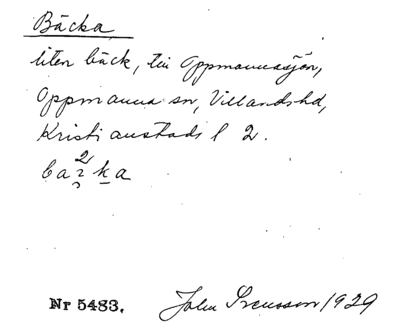 Bäcka
liten bäck, till Oppmannasjön,
Oppmanna sn, Villands hd,
Kristianstads l 2.
Nr 5483. John Svensson 1929